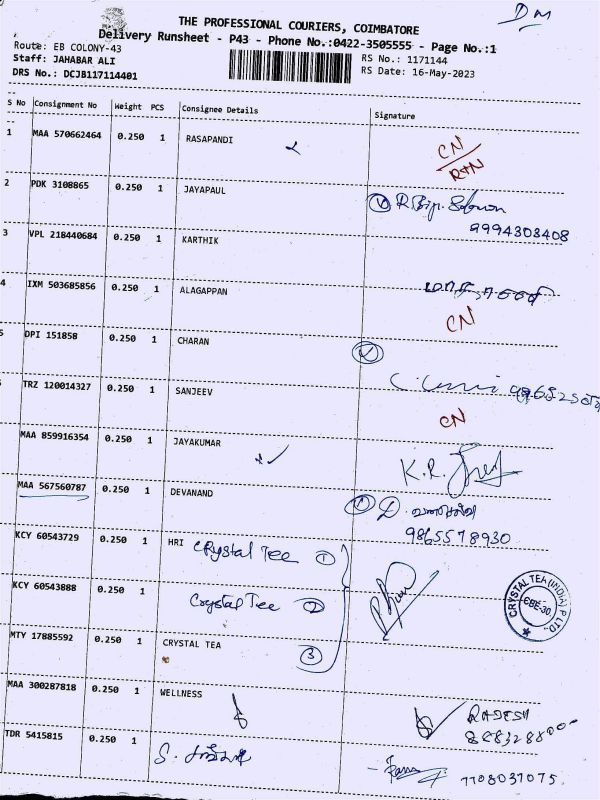 DM
THE PROFESSIONAL COURIERS, COIMBATORE
Delivery Runsheet - P43 - Phone No.:0422-3505555 - Page No.:1
Route: EB COLONY-43
RS No.: 1171144
Staff: JAHABAR ALI
RS Date: 16-May-2023
DRS No.: DCJB117114401
S No Consignment No Weight PCS Consignee Details Signature
1 MAA 570662464 0.250 1 RASAPANDI CN
RTN
2 PDK 3108865 0.250 1 JAYAPAUL
9994303408
3 VPL 218440684 0.250 1 KARTHIK
4 IXM 503685856 0.250 1 ALAGAPPAN
CN
DPI 151858 0.250 1 CHARAN
TRZ 120014327 0.250 1 SANJEEV
CN
MAA 859916354 0.250 1 JAYAKUMAR K.R.
MAA 567560787 0.250 1 DEVANAND
9865578930
KCY 60543729 0.250 1 HRI Crystal Tee 1
KCY 60543888 0.250 1 Crystal Tee 2
CRYSTAL TEA (INDIA) P LTD.,
CBE-30
MTY 17885592 0.250 1 CRYSTAL TEA 3
MAA 300287818 0.250 1 WELLNESS RAJESH
TDR 5415815 0.250 1 S. 7708031075